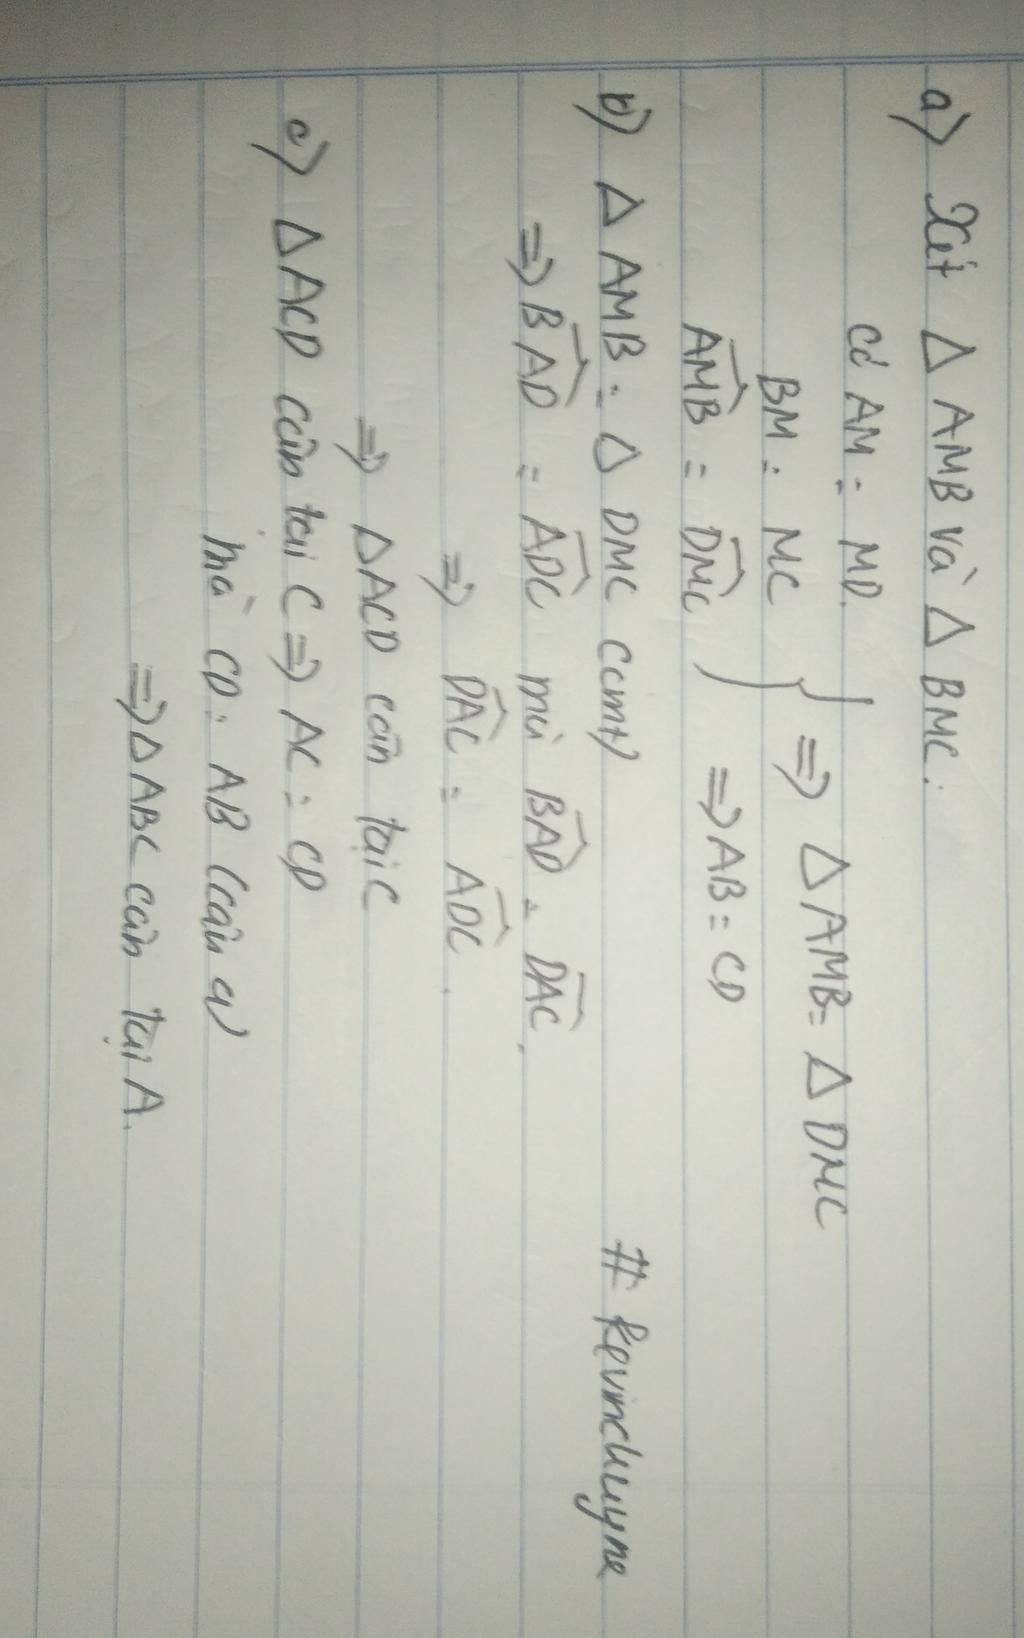 a) Xét △ AMB và △ BMC.
có AM = MD.
BM = MC
AMB = DMC
=> △ AMB = △ DMC
=> AB = CD
b) △ AMB = △ DMC (cmt)
=> BAD = ADC mà BAD = DAC.
=> DAC = ADC.
=> △ACD cân tại C
c) △ACD cân tại C => AC = CD
mà CD = AB (câu a)
=> △ABC cân tại A.
# kevinchuyne